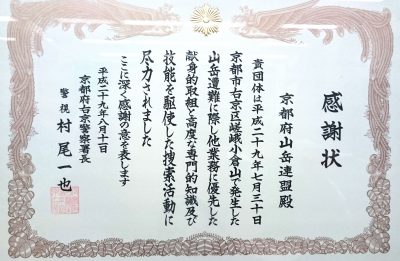 感謝状
京都府山岳連盟殿
貴団体は平成二十九年七月三十日
京都市右京区嵯峨小倉山で発生した
山岳遭難に際し他業務に優先した
献身的取組と高度な専門的知識及び
技能を駆使した捜索活動に
尽力されました
ここに深く感謝の意を表します
平成二十九年八月十一日
京都府右京警察署長
警視 村尾一也